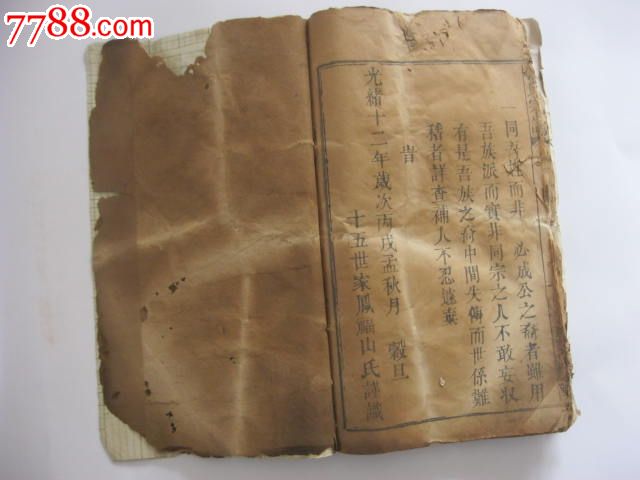 7788.com
一同衣姓而非 必成公之裔者雖用
吾族派而實非同宗之人不敢妄収
有是吾族之裔中間失傳而世係難
稽者詳查補入不忍遺棄
旹
光緒十二年歲次丙戌孟秋月 穀旦
十五世家鳳 山氏謹識